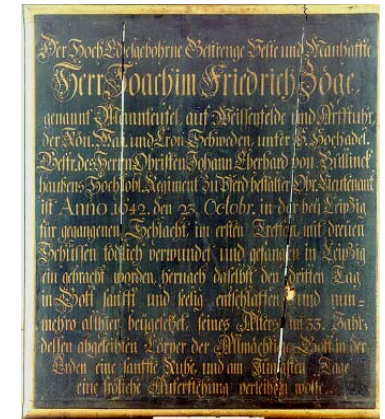 Der Hoch Edelgebohrne Gestrenge Veste und Manhaffte
Herr Joachim Friedrich Zöge,
genannt Mannteufel, auf Weissefelde und Arfkuhr,
der Kön. Maj. und Cron Schweden, unter S. Hochadel.
Gestr. des Herrn Obristen Johann Eberhard von Billinck
hausens Hochlobl. Regiment zu Pferd bestalter Obr. Lieutenant
ist Anno 1642. den 23. Octobr. in der bey Leipzig
für gegangenen Schlacht, im ersten Treffen mit dreüen
Schüssen tödlich verwundet und gefangen in Leipzig
ein gebracht worden, hernach daselbst den dritten Tag
in Gott sanfft und seelig entschlaffen und nun-
mehro allhier beügesetzet, seines Alters im 33. Jahr,
dessen abgeleibten Cörper der Allmächtige Gott in der
Erden eine sanffte Ruhe, und am Jüngsten Tage
eine fröliche Aufersthung verleihen wolle.